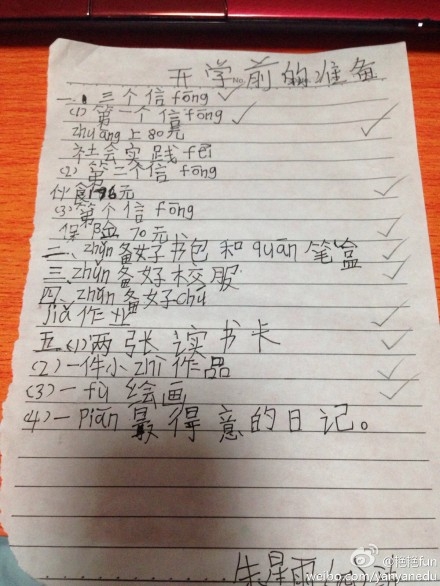 开学前的准备
一、三个信fōng
(1)第一个信fōng
zhuāng上80元
社会实践fēi
(2)第二个信fōng
伙食196元
(3)第个信fōng
保险70元
二、zhǔn备好书包和quān笔盒
三、zhǔn备好校服
四、zhǔn备好chú
jiā作业
五(1)两张读书卡
(2)一件小zhì作品
(3)一fù绘画
(4)一piān最得意的日记。
朱星雨
@搖搖fun
weibo.com/yanyanedu